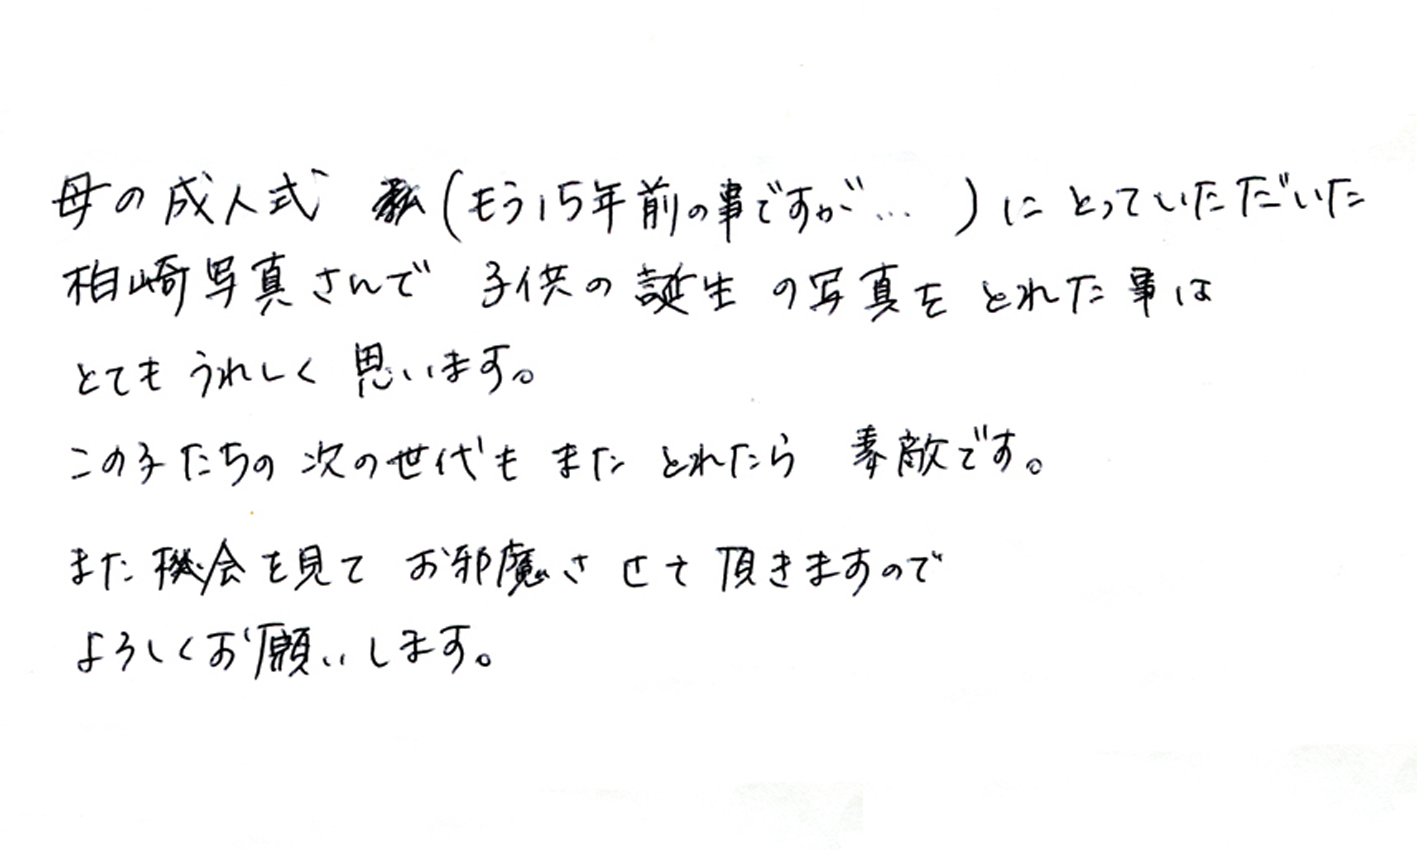 母の成人式 私(もう15年前の事ですが… )にとっていただいた
柏崎写真さんで 子供の誕生の写真をとれた事は
とてもうれしく思います。
この子たちの次の世代もまたとれたら 素敵です。
また機会を見て お邪魔させて頂きますので
よろしくお願いします。